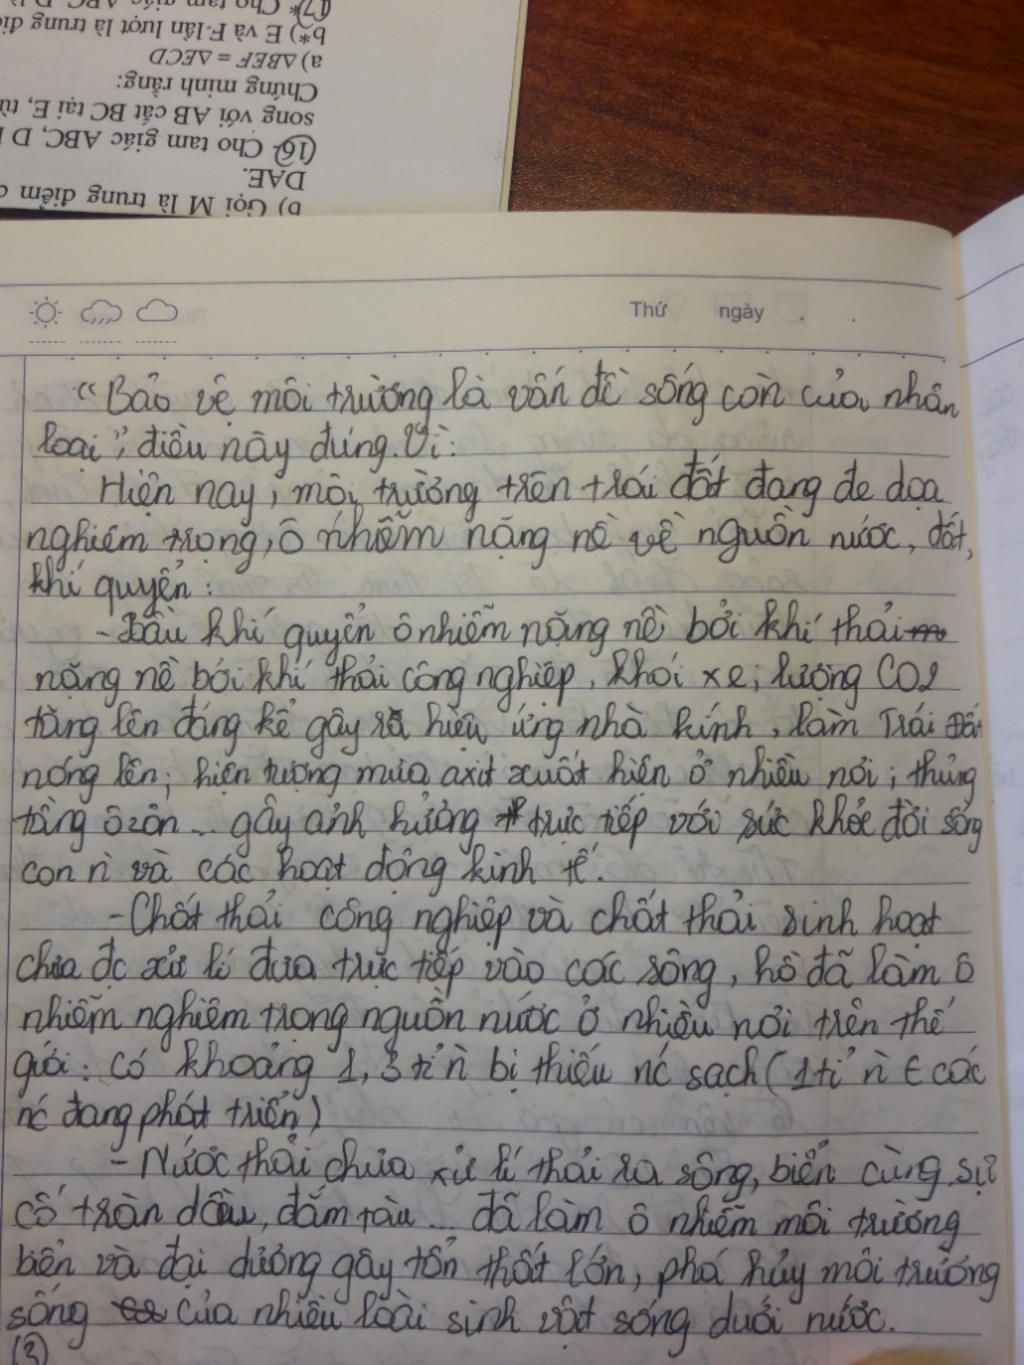 17* Cho tam giác ABC, D là
b*) E và F lần lượt là trung điể
a) ΔBEF = ΔECD
Chứng minh rằng:
song với AB cắt BC tại E, từ
16 Cho tam giác ABC, D
DAE.
b) Gọi M là trung điểm c
Thứ ngày
"Bảo vệ môi trường là vấn đề sống còn của nhân
loại", điều này đúng. Vì:
Hiện nay, môi trường trên trái đất đang đe dọa
nghiêm trọng, ô nhiễm nặng nề về nguồn nước, đất,
khí quyển:
- Bầu khí quyển ô nhiễm nặng nề bởi khí thải
nặng nề bởi khí thải công nghiệp, khói xe; lượng CO2
tăng lên đáng kể gây ra hiệu ứng nhà kính, làm Trái Đất
nóng lên; hiện tượng mưa axit xuất hiện ở nhiều nơi; thủng
tầng ôzôn... gây ảnh hưởng trực tiếp với sức khỏe đời sống
con n̄ và các hoạt động kinh tế.
- Chất thải công nghiệp và chất thải sinh hoạt
chưa đc xử lí đưa trực tiếp vào các sông, hồ đã làm ô
nhiễm nghiêm trọng nguồn nước ở nhiều nơi trên thế
giới: Có khoảng 1,3 tỉ n̄ bị thiếu nc sạch (1 tỉ n̄ ∈ các
nc đang phát triển)
- Nước thải chưa xử lí thải ra sông, biển cùng sự
cố tràn dầu, đắm tàu... đã làm ô nhiễm môi trường
biển và đại dương gây tổn thất lớn, phá hủy môi trường
sống của nhiều loài sinh vật sống dưới nước.
(3)